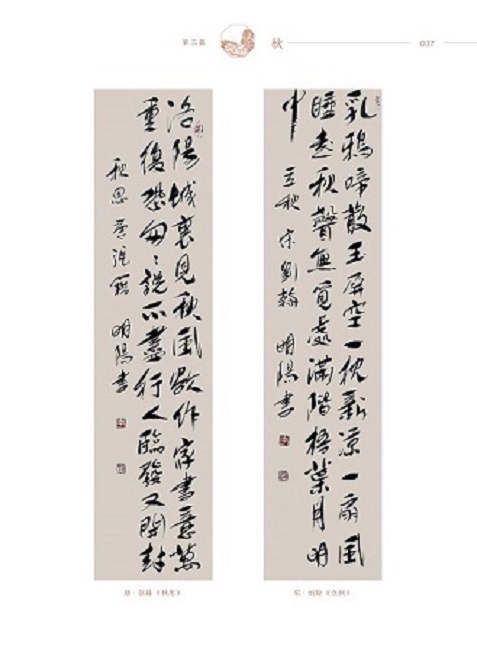 第三篇 秋 037
乳鸦啼散玉屏空一枕新凉一扇風
睡起秋聲無覓處滿階梧葉月明
中
立秋 宋 劉翰 明陽書
洛陽城裏見秋風欲作家書意萬
重復恐匆匆說不盡行人臨發又開封
秋思 唐 張籍 明陽書
唐·張籍《秋思》
宋·劉翰《立秋》